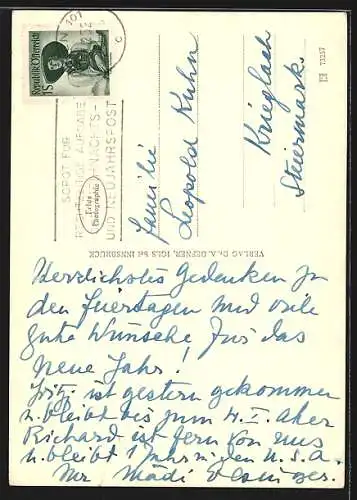 101
Republik Österreich
1S
SORGT FÜR
RECHTZEITIGE AUFGABE
WEIHNACHTS-
UND NEUJAHRSPOST
Echte
Photographie
Familie
Leopold Kuhn
Krieglach
Steiermark.
73257
VERLAG Dr. A. DEFNER, IGLS bei INNSBRUCK
Herzlichstes Gedenken zu
den Feiertagen und viele
gute Wünsche für das
neue Jahr!
Fritz ist gestern gekommen
u. bleibt bis zum 4. I. Aber
Richard ist fern von uns
u. bleibt 1 Jahr in U.S.A.
Mädi